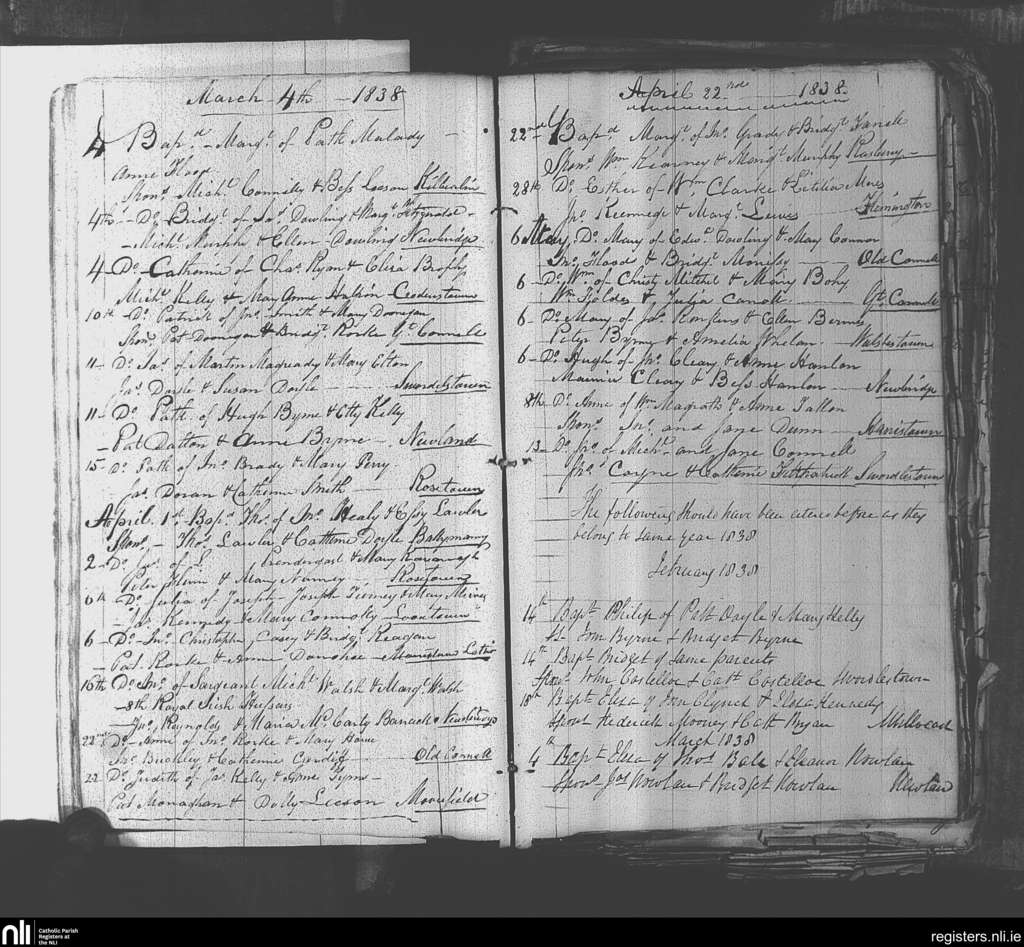 March 4th 1838
4 Bapd. Margt. of Path Malady
Anne Hoop
Spons. Michl. Connelly & Bess Leeson
4th Do. Bridgt. of Jas. Dowling & Margt.
Michl. Murphy & Ellen Dowling Newbridge
4 Do. Catherine of Chas. Ryan & Eliza Brophy
Michl. Kelly & Mary Anne
10th Do. Patrick of Jno. Smith & Mary Doonegan
Spons. Pat Doonegan & Bridgt. Rorke Gt. Connell
11 Do. Jas. of Martin Magready & Mary Elton
Jas. Doyle & Susan Doyle Swordlestown
11 Do. Path. of Hugh Byrne & Etty Kelly
Pat Dalton & Anne Byrne Newland
15 Do. Path of Jno. Brady & Mary Perry
Jas. Doran & Catherine Smith Rosetown
April 1st Bapd. Thos. of Jno. Healy & Essy Lawler
Spons. Thos. Lawler & Catherine Doyle Ballymany
2 Do. Jas. of Prendergast & Mary Kavanagh
Peter & Mary Rosetown
6th Do. Julia of Joseph Joseph Tierney & Mary
Jas. Kennedy & Mary Connolly
6 Do. Jno. Christopher Casey & Bridgt. Reagan
Pat. Rorke & Anne Donohoe
16th Do. Jno. of Sargeant Michl. Walsh & Margt. Walsh
8th Royal Irish Hussars
Jno. Reynolds & Maria McCarty Barracks Newbridge
22nd Do. Anne of Jno. Rorke & Mary
Jno. Buckley & Catherine Cardiff Old Connell
22 Do. Judith of Jas. Kelly & Anne
Pat Monaghan & Dolly Leeson Moorefield
April 22nd 1838
22nd Bapd. Margt. of Jno. Grady & Bridgt.
Spons. Wm. Kearney & Margt. Murphy
28th Do. Esther of Wm. Clarke & Letitia
Jno. & Margt. Lewis
6 May, Do. Mary of Edwd. Dowling & Mary Connor
Jno. Floode & Bridgt. Old Connell
6 Do. Wm. of Christy Mitchel & Mary Bohy
Wm. & Julia Gt. Connell
6 Do. Mary of Jas. & Ellen
Peter Byrne & Amelia Whelan Walshestown
6 Do. Hugh of Jno. Cleary & Anne Hanlon
Maurice Cleary & Bess Hanlon Newbridge
8th Do. Anne of Wm. Magrath & Anne Fallon
Spons. Jno. and Jane Dunn Harristown
13 Do. Jno. of Michl. and Jane Connell
Jno. Coyne & Catherine Swordlestown
The following should have been entered before as they
belong to same year 1838
February 1838
14th Bapt. Philip of Patt Doyle & Mary Kelly
Ss. John Byrne & Bridget Byrne
14th Bapt. Bridget of same parents
Spons. John Costelloe & Cath Costelloe
18th Bapt. Eliza of John & Eliza Kennedy
Spons. Frederick Mooney & Cath Bryan
March 1838
4th Bapt. Eliza of Thos. & Eleanor Nowlan
Spons. Jas. Nowlan & Bridget Nowlan Newlan
nli
Catholic Parish
Registers at
the NLI
registers.nli.ie